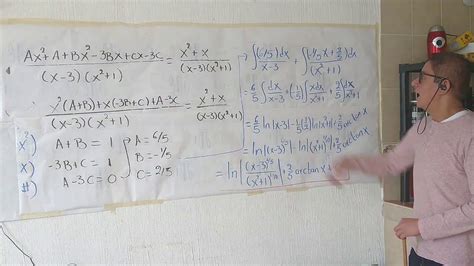 Ax²+A+Bx²-3Bx+Cx-3C / (x-3)(x²+1) = x²+x / (x-3)(x²+1)
x²(A+B)+x(-3B+C)+A-3C / (x-3)(x²+1) = x²+x / (x-3)(x²+1)
x²) A+B = 1
x) -3B+C = 1
#) A-3C = 0
A = 6/5
B = -1/5
C = 2/5
→ ∫(6/5)dx / x-3 + ∫(-1/5x+2/5)dx / (x²+1)
= 6/5 ∫dx / x-3 - (1/5)∫xdx / x²+1 + 2/5 ∫dx / x²+1
= 6/5 ln|x-3| - 1/5 (1/2) ln|x²+1| + 2/5 arctanx
= ln|(x-3)^6/5| - ln|(x²+1)^1/10| + 2/5 arctanx
= ln|(x-3)^6/5 / (x²+1)^1/10| + 2/5 arctanx